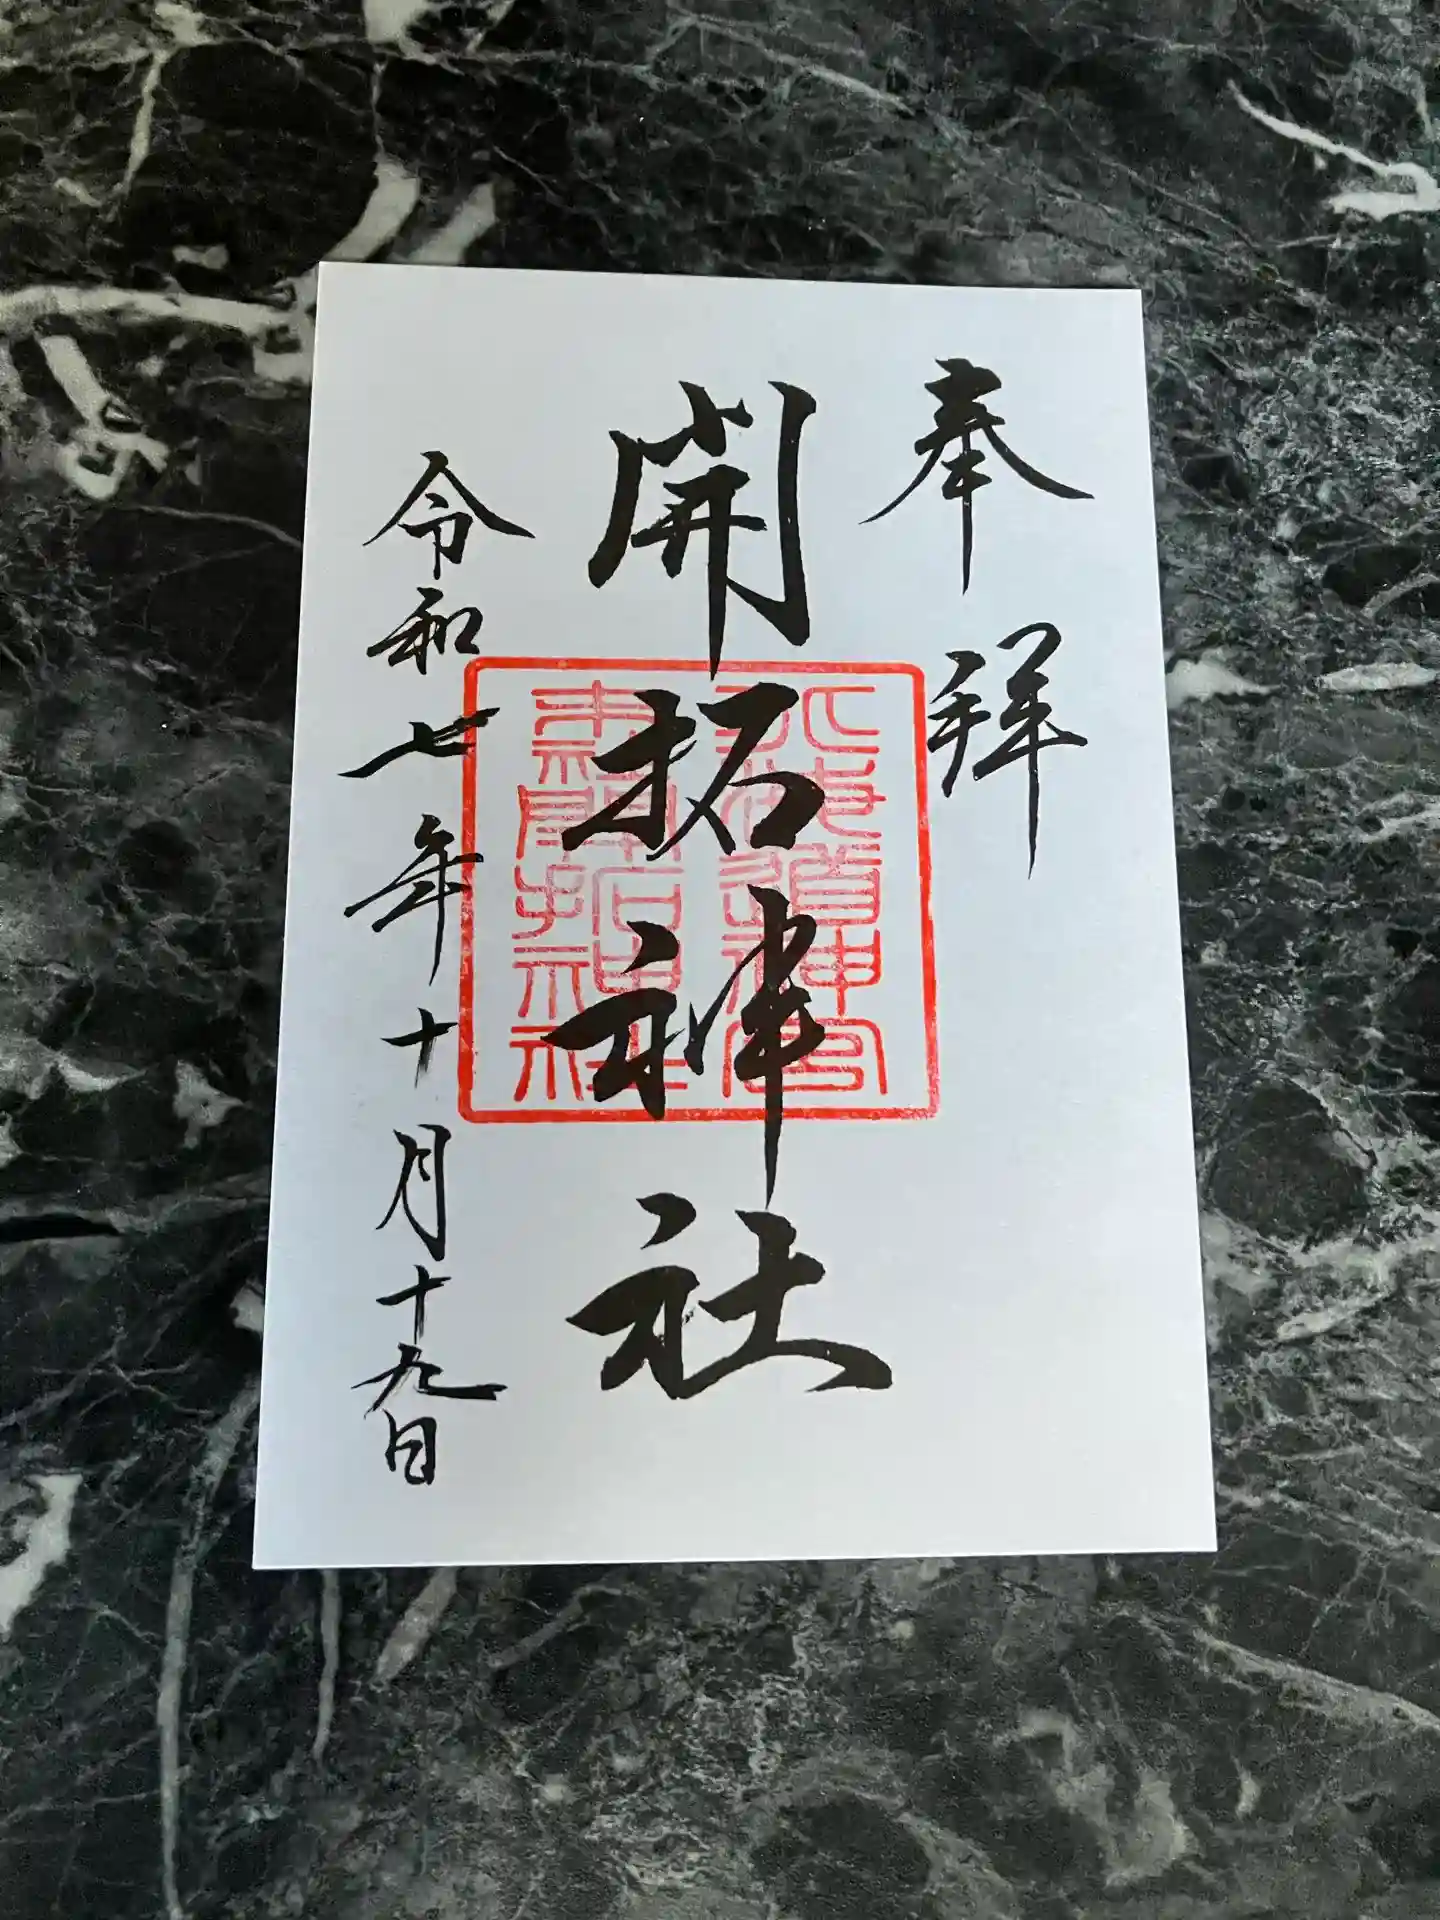 奉拝
開拓神社
北海道神宮
末社開拓神社
令和七年十月十九日